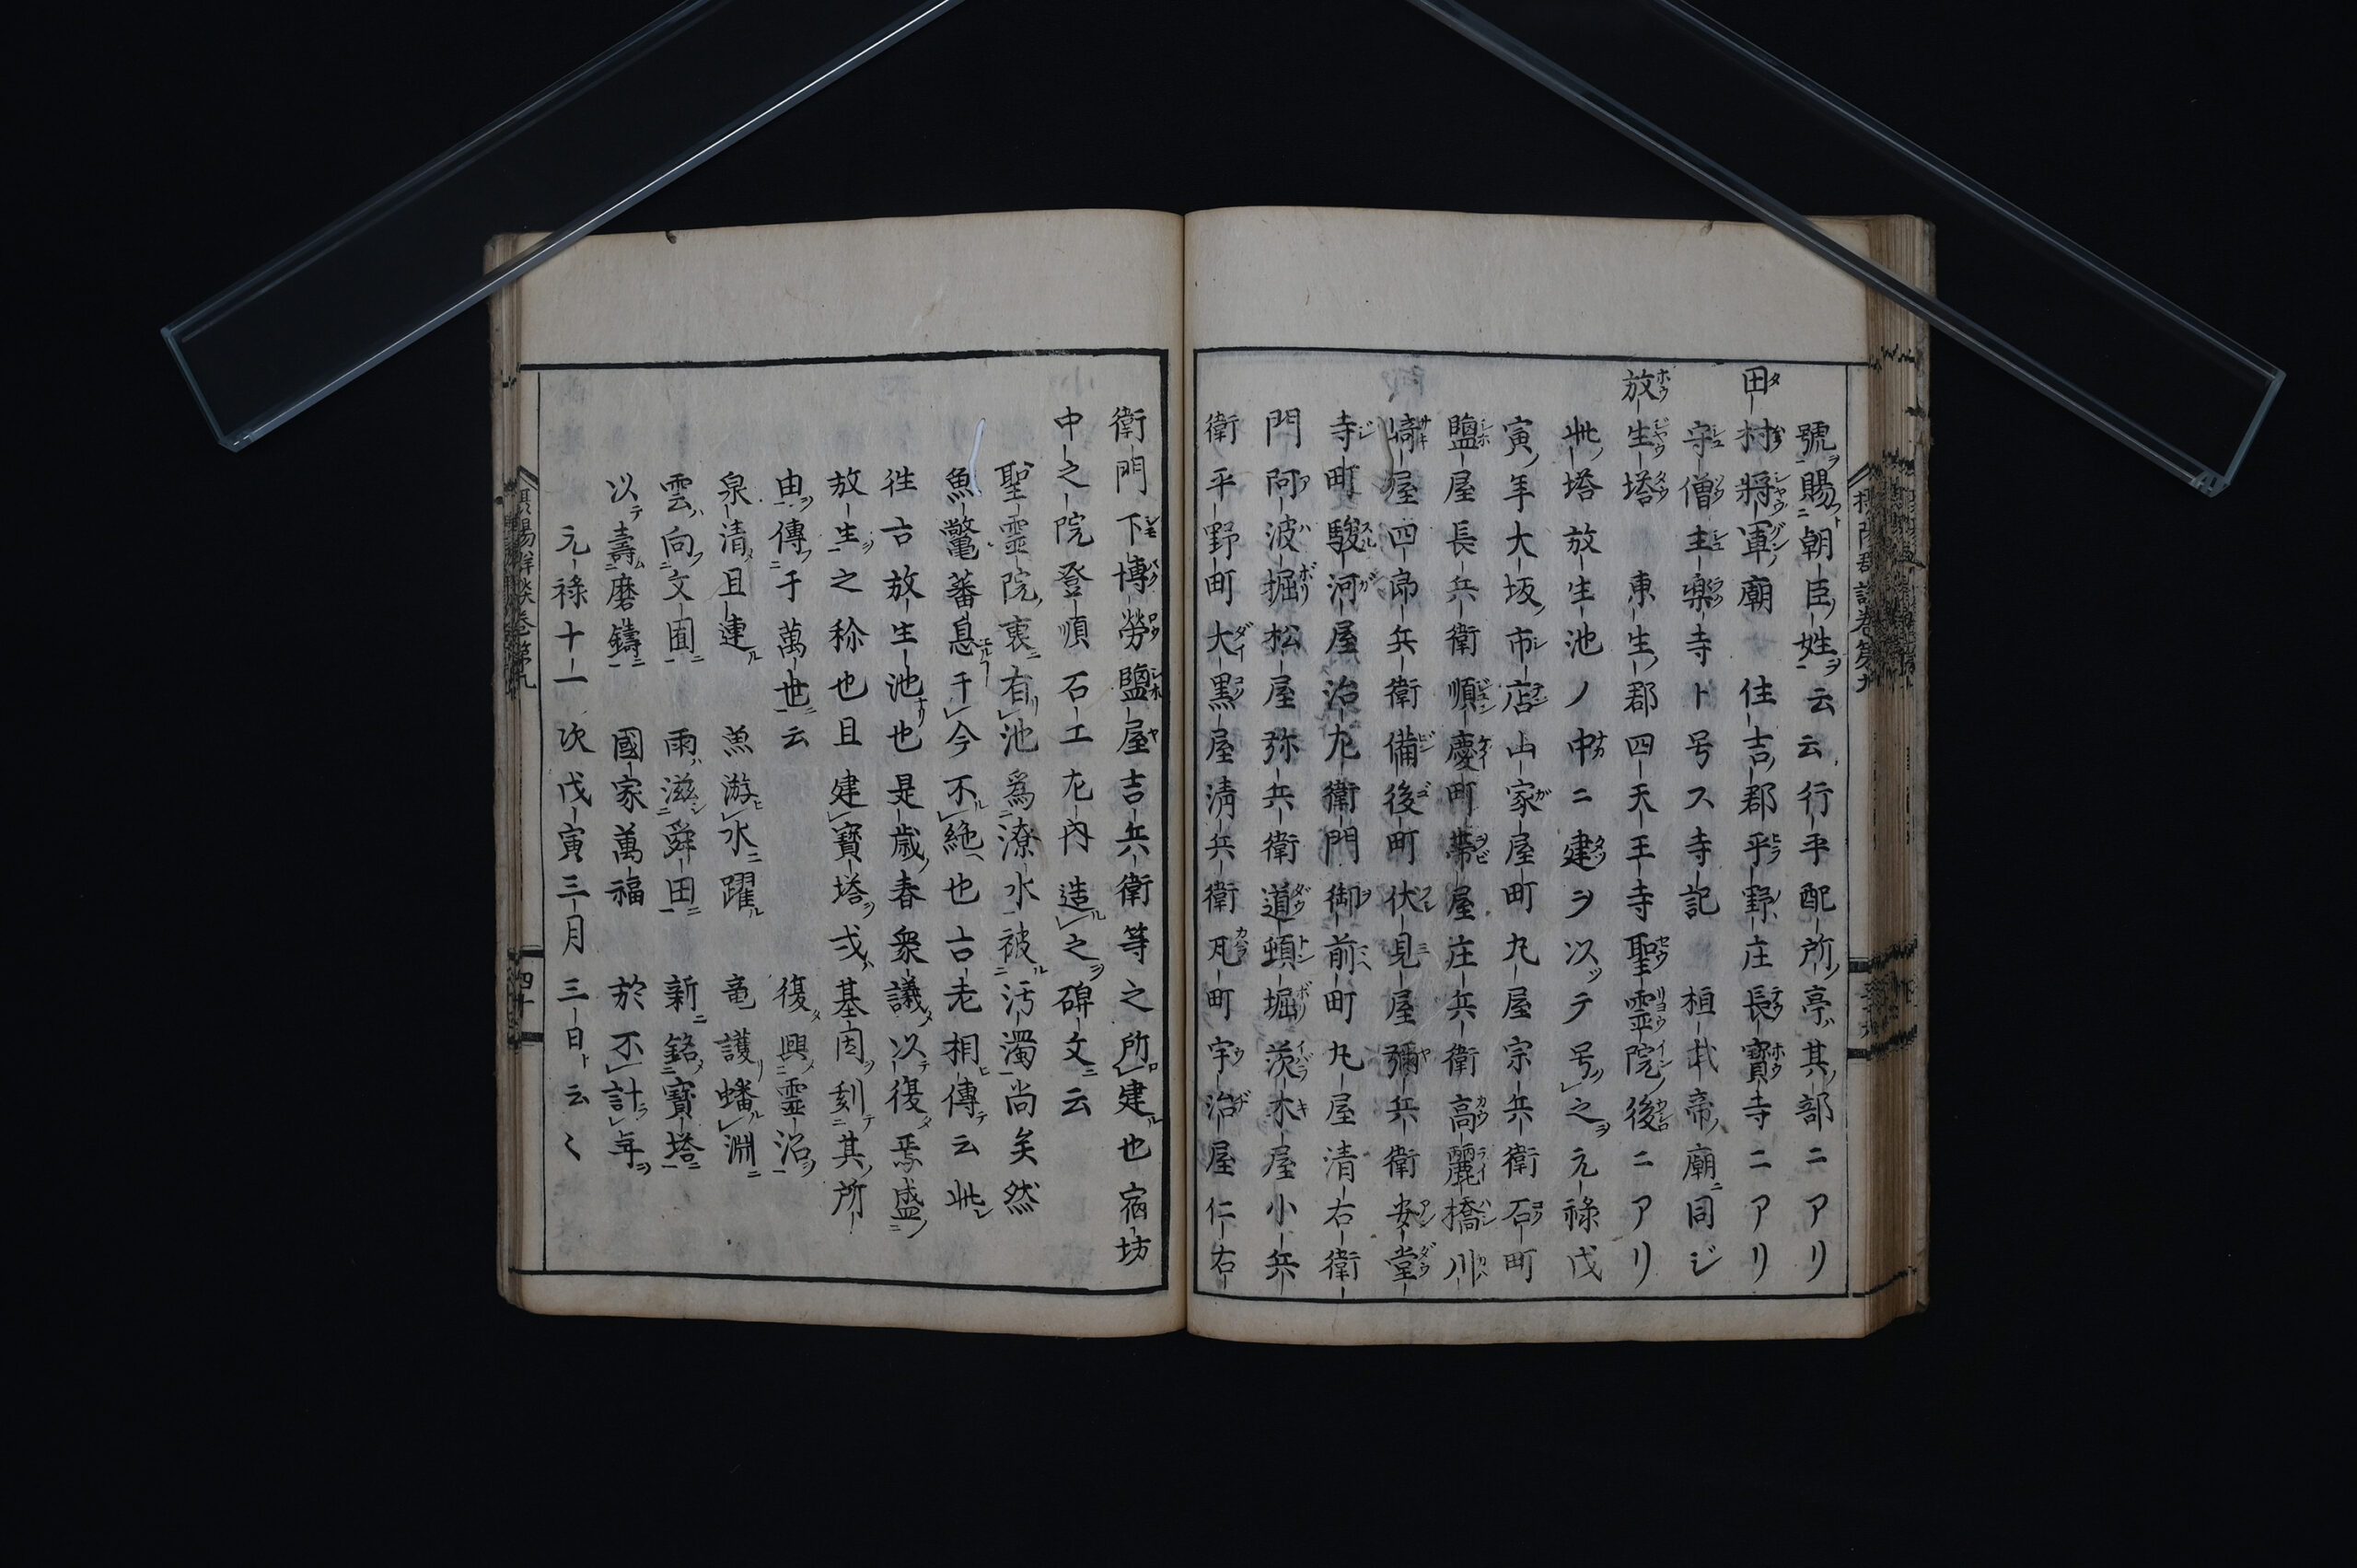 號賜朝臣姓云云行平配所亭其部ニアリ
田村將軍廟 住吉郡平野庄長寳寺ニアリ
守僧主楽寺ト号ス寺記 桓武帝廟同ジ
放生塔 東生郡四天王寺聖霊院後ニアリ
此塔放生池ノ中ニ建ヲ以テ号之元禄戊
寅年大坂市店山家屋町九屋宗兵衛石町
鹽屋長兵衛順慶町帯屋庄兵衛高麗橋川
﨑屋四郎兵衛備後町伏見屋彌兵衛安堂
寺町駿河屋治九衛門御前町丸屋清右衛
門阿波堀松屋弥兵衛道頓堀茨木屋小兵
衛平野町大黒屋清兵衛瓦町宇治屋仁右
衛門下博勞鹽屋吉兵衛等之所建也宿坊
中之院登順石工九内造之碑文云
聖霊院裏有池爲潦水被汚濁尚矣然
魚鼈蕃息千今不絶也古老相傳云此
徃古放生池也是歳春衆議以復焉盛
放生之称也且建寳塔戒基因刻其所
由傳于萬世云 復興霊沼
泉清且連 魚游水躍 竜護蟠淵
雲向文囿 雨滋舜田 新銘寳塔
以壽磨鑄 國家萬福 於不計年
元禄十一次戊寅三月三日云〱
攝陽群談巻第九
四十